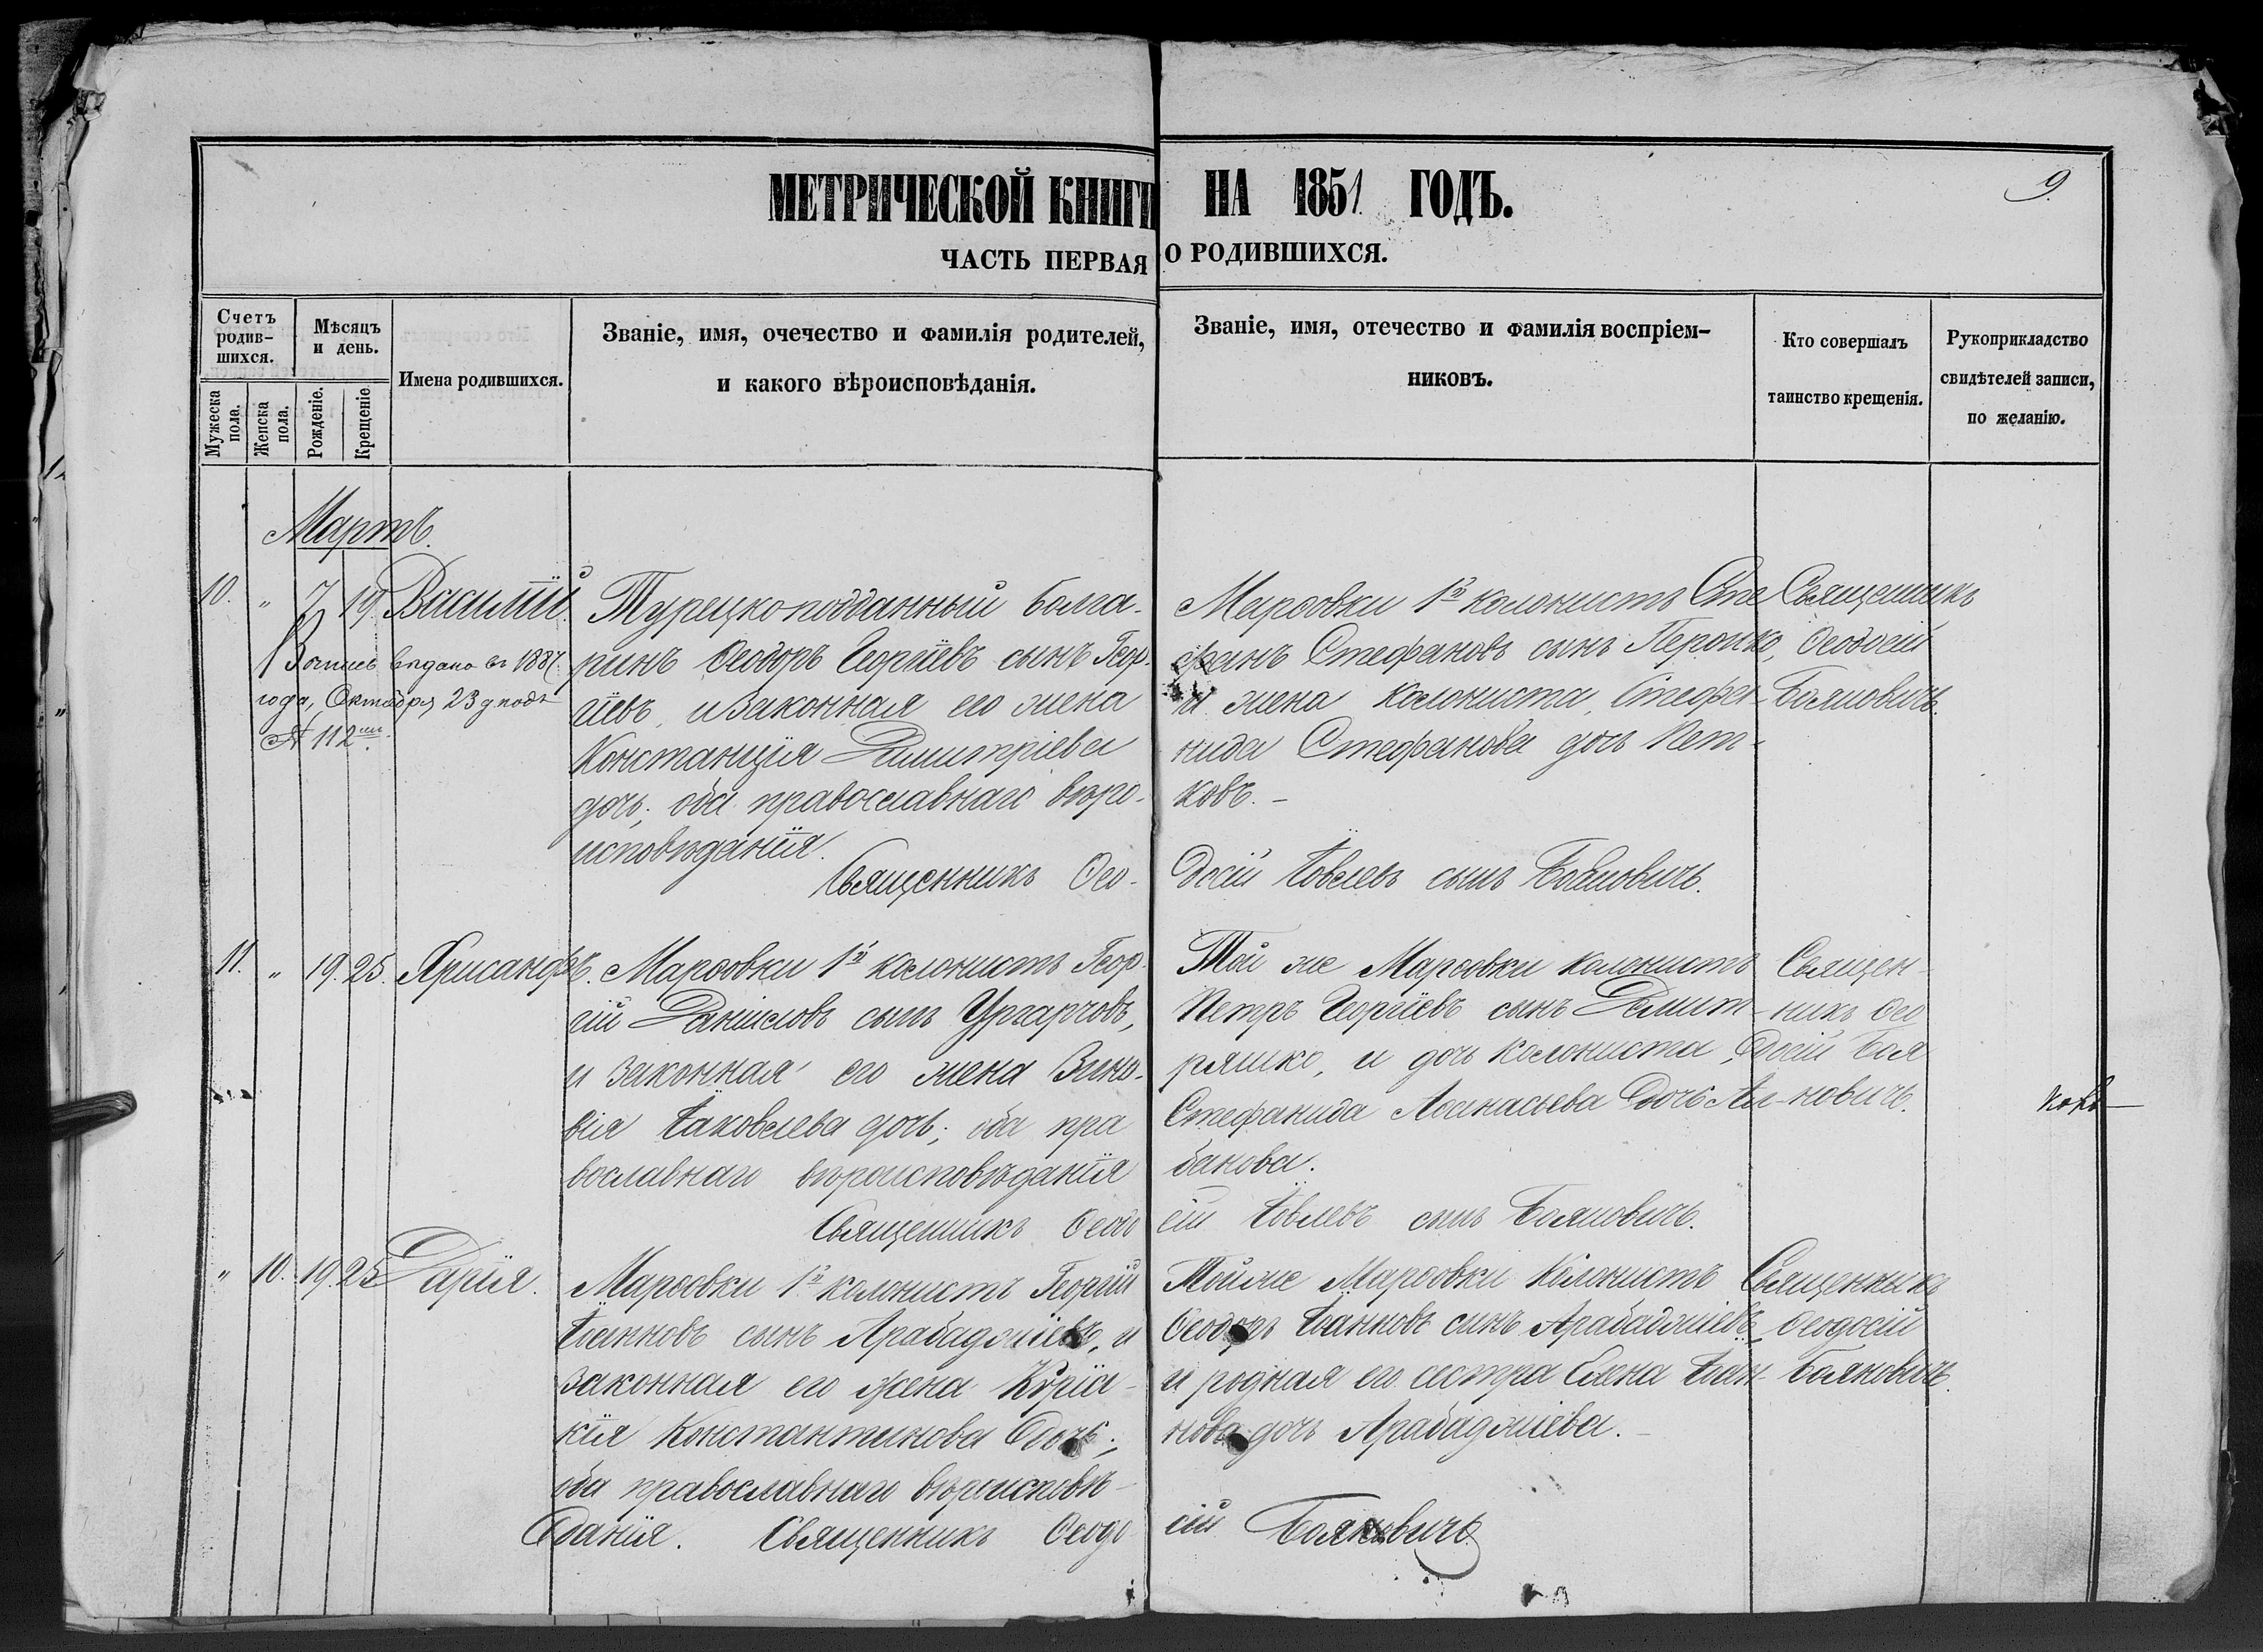 МЕТРИЧЕСКОЙ КНИГИ НА 1851 ГОДЪ.
9.
ЧАСТЬ ПЕРВАЯ О РОДИВШИХСЯ.
Счетъ родившихся.
Мужеска пола.
Женска пола.
Мѣсяцъ и день.
Рожденіе.
Крещеніе
Имена родившихся.
Званіе, имя, очечество и фамилія родителей,
и какого вѣроисповѣданія.
Званіе, имя, отечество и фамилія воспріем-
никовъ.
Кто совершалъ
таинство крещенія.
Рукоприкладство
свидѣтелей записи,
по желанію.
Мартъ.
10. " 7 19. Василій.
выдана въ 1887.
года, Октября 23 д подъ
№ 112
Турецкоподданный болга-
ринъ Ѳеодоръ Георгіевъ сынъ Геор-
гіевъ, и законная его жена
Констанція Димитріева
дочь; оба православнаго вѣро-
исповѣданія.
Священникъ Ѳео-
Марѳовки колонистъ Сте
фанъ Стефановъ сынъ
и жена колониста, Стефа-
нида Стефанова дочь Пет-
ковъ.-
досій Іовлевъ сынъ Бояновичъ.
Священникъ
Ѳеодосій
Бояновичъ.
11. " 19. 25. Хрисанфъ.
Марѳовки колонистъ Геор-
гій Даніиловъ сынъ
и законная его жена Зино-
вія Іаковлева дочь; оба пра
вославнаго вѣроисповѣданія
Священникъ Ѳеодо
Той же Марѳовки колонистъ
Петръ Георгіевъ сынъ Димит-
ряшко, и дочь колониста,
Стефанида Аѳанасьева дочь Ал-
банова.
сій Іовлевъ сынъ Бояновичъ.
Священ-
никъ Ѳео
досій Боя
новичъ.
" 10. 19. 25 Дарія.
Марѳовки колонистъ Георгій
Іоанновъ сынъ Арабаджіевъ, и
законная его жена Кѵріа-
кія Константинова дочь;
оба православнаго вѣроисповѣ-
данія. Священникъ Ѳеодо
Той же Марѳовки колонистъ
Ѳеодоръ Іоанновъ синъ Арабаджіевъ
и родная его сестра Елена Іоан-
нова дочь Арабаджіева.-
сій Бояновичъ
Священникъ
Ѳеодосій
Бояновичъ.